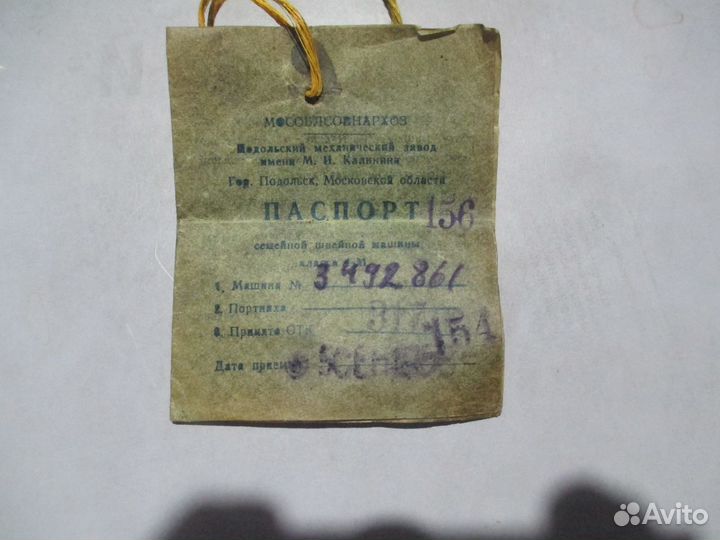 МОСОБЛСОВНАРХОЗ
Подольский механический завод
имени М. И. Калинина
Гор. Подольск, Московской области
ПАСПОРТ 156
семейной швейной машины
класса М
1. Машина № 3492861
2. Портниха
3. Принята ОТК 317
154
Дата приемки
Avito